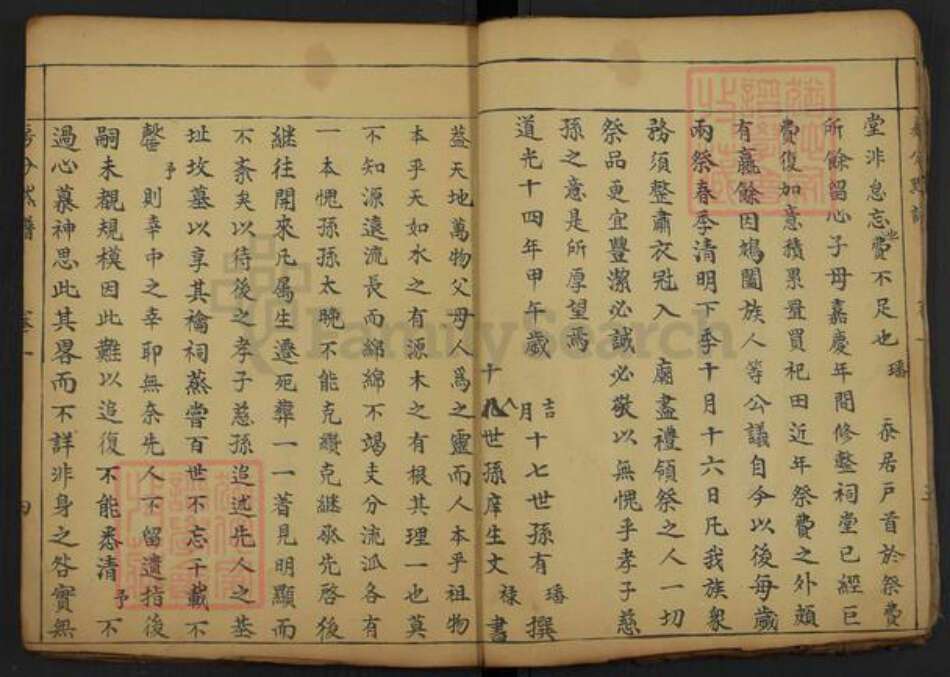 堂非怠忘也費不足也 璠 忝居戶首於祭費
所餘留心子母嘉慶年間修整祠堂已經巨
費復加意積累疊買祀田近年祭費之外頗
有贏餘因鳩闔族人等公議自今以後每歲
兩祭春季清明下季十月十六日凡我族衆
務須整肅衣冠入 廟盡禮領祭之人一切
祭品更宜豐潔必誠必敬以無愧乎孝子慈
孫之意是所厚望焉
道光十四年甲午歲八月吉十七世孫有璠撰
十八世孫庠生文祿書
蓋天地萬物父母人為之靈而人本乎祖物
本乎天如水之有源木之有根其理一也莫
不知源遠流長而綿綿不竭支分流派各有
一本愧孫孫太晩不能克纘克繼承先啓後
繼往開來凡属生遷死葬一一著見明顯而
不紊矣以待後之孝子慈孫追述先人之基
址坟墓以享其禴祠蒸嘗百世不忘千載不
罄予則幸中之幸耶無奈先人不留遺指後
嗣未親規模因此難以追復不能悉清予不
過心慕神思此其畧而不詳非身之咎實無
FamilySearch